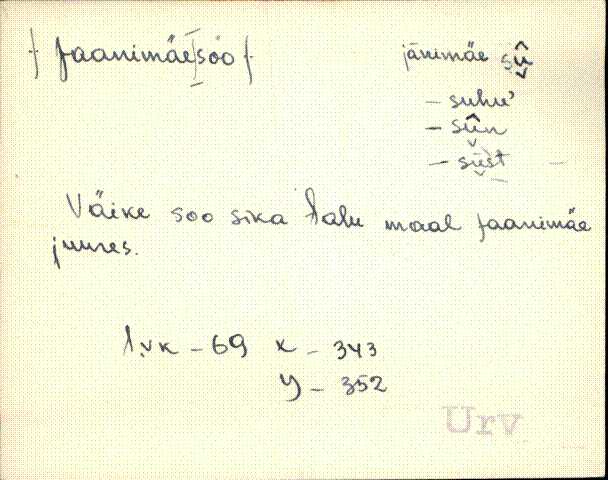 Jaanimäe soo
jänimäe sû̬
– suhu'
– sû̬n
– sü̬st –
Väike soo Sika talu maal Jaanimäe
juures.
1.vk – 69 x – 343
y – 352
Urv